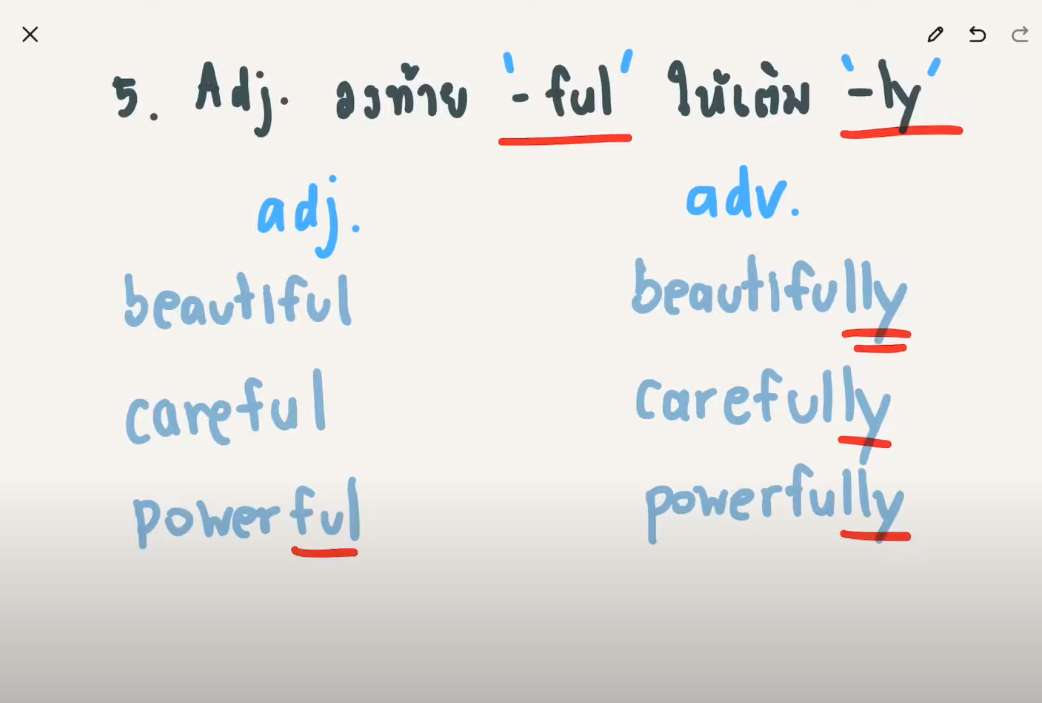 5. Adj. ลงท้าย '-ful' ให้เติม '-ly'
adj. adv.
beautiful beautifully
careful carefully
powerful powerfully